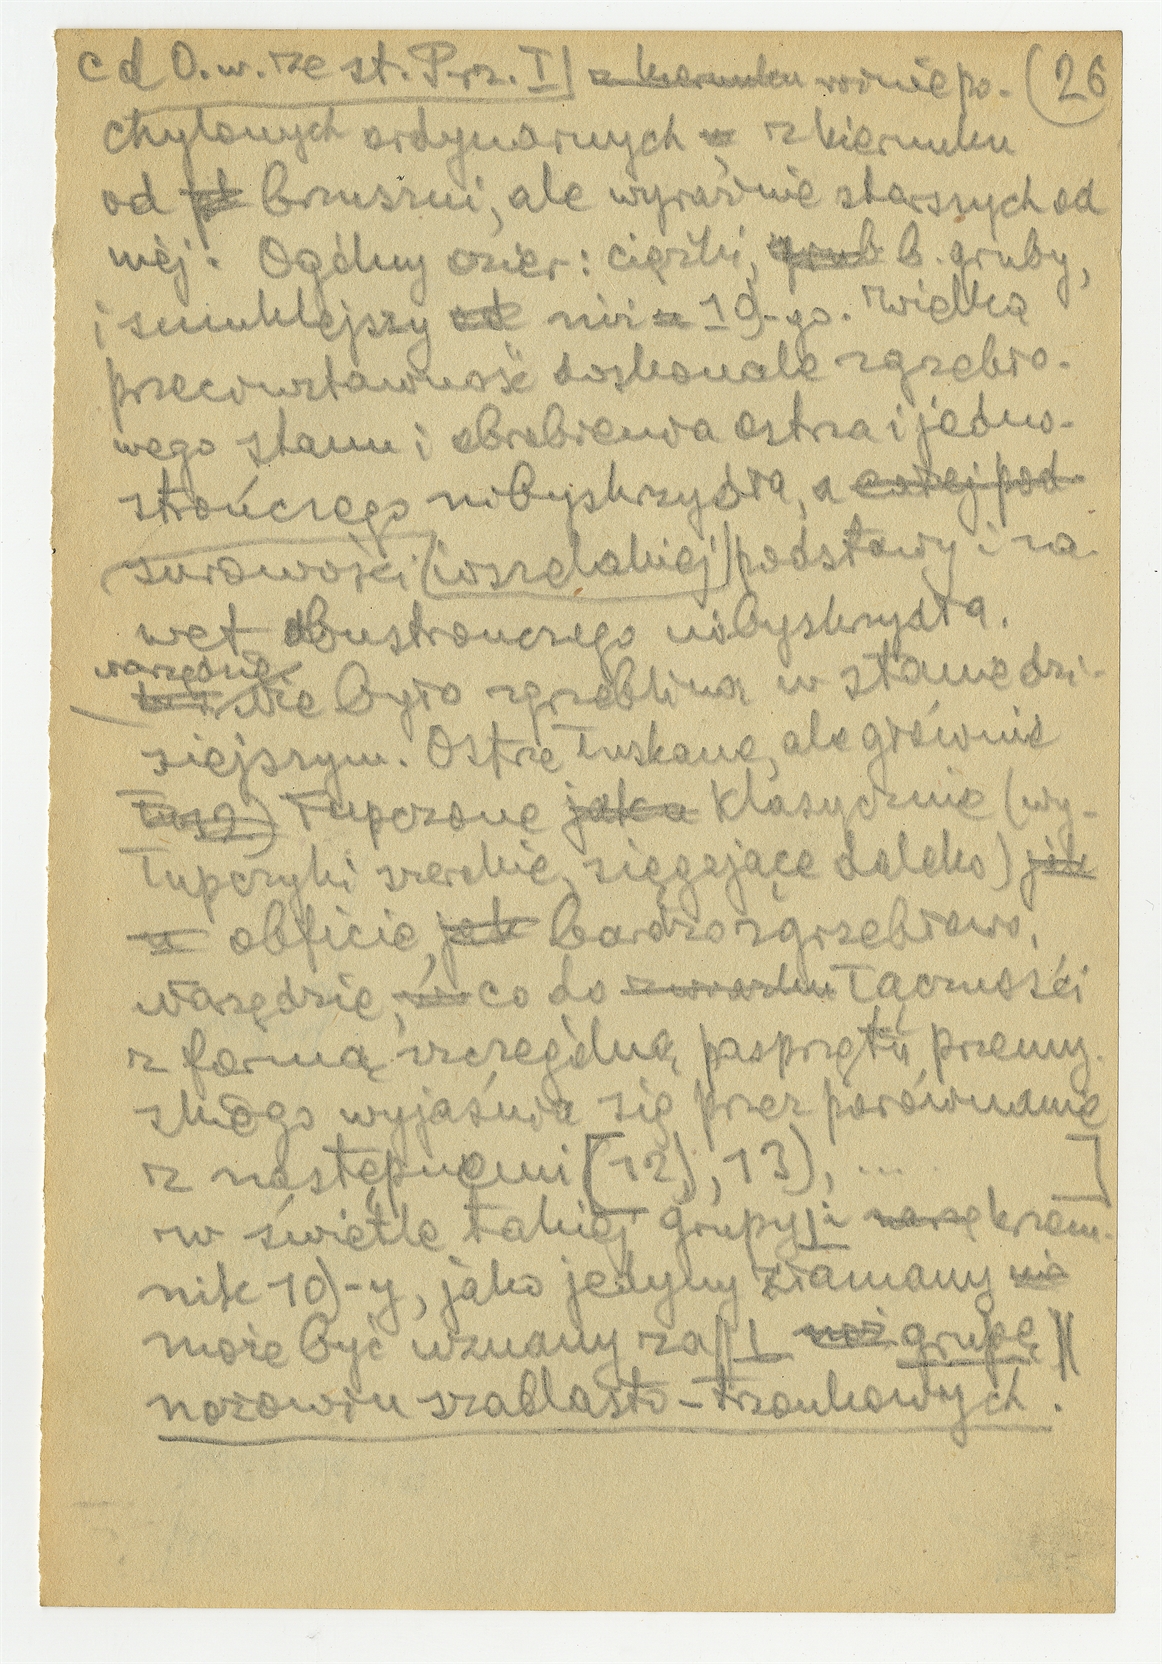 c d O. w. rze st. P. rz. I] z kierunku rośnie po- (26
chylonych ordynarnych z kierunku
od brzuszni, ale wyraźnie starszych od
niej. Ogólny ozier: ciężki, grub b. gruby,
i smuklejszy od niż 19-go. Wielka
przeciwstawność doskonale zgrzebło-
wego stanu i obrobienia ostrza i jedno-
strończego nibyskrzydła, a całej pod-
surowości (wszelakiej) podstawy i na-
wet obustronczego nibyskrzydła.
narzędzie
Nie było zgrzeblina w stanie dzi-
siejszym. Ostrze łuskane, ale głównie
łupczone jako klasycznie (wy-
łupczyki szerokie, sięgające daleko) jak
obficie, jak bardzo zgrzebłowo.
Narzędzie, co do związku łączności
z formą szczególną pasprzętu przemy-
skiego wyjaśnia się przez porównanie
z następnemi [12), 13), ... ]
w świetle takiej grupy i narzę krzem-
nik 10)-y, jako jedyny złamany nie
może być uznany za || I noż grupę ||
nożowin szablasto-trzonkowych.